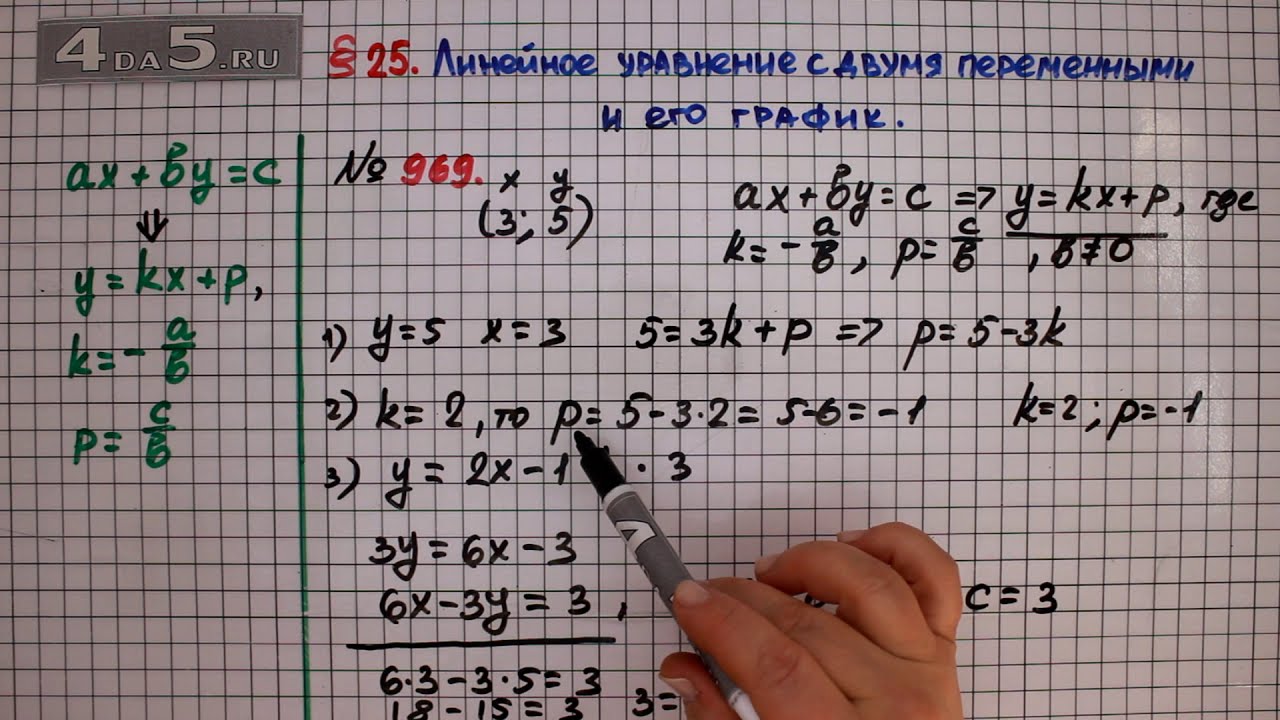 4DA5.RU
§ 25. Линейное уравнение с двумя переменными
и его график.
ax + by = c
⇓
y = kx + p,
k = - a/b
p = c/b
№ 969. x y
(3; 5)
ax + by = c => y = kx + p, где
k = - a/b, p = c/b, b ≠ 0
1) y = 5 x = 3 5 = 3k + p => p = 5 - 3k
2) k = 2, то p = 5 - 3·2 = 5 - 6 = -1 k = 2; p = -1
3) y = 2x - 1 · 3
3y = 6x - 3
6x - 3y = 3, c = 3
6·3 - 3·5 = 3
18 - 15 = 3 3 =